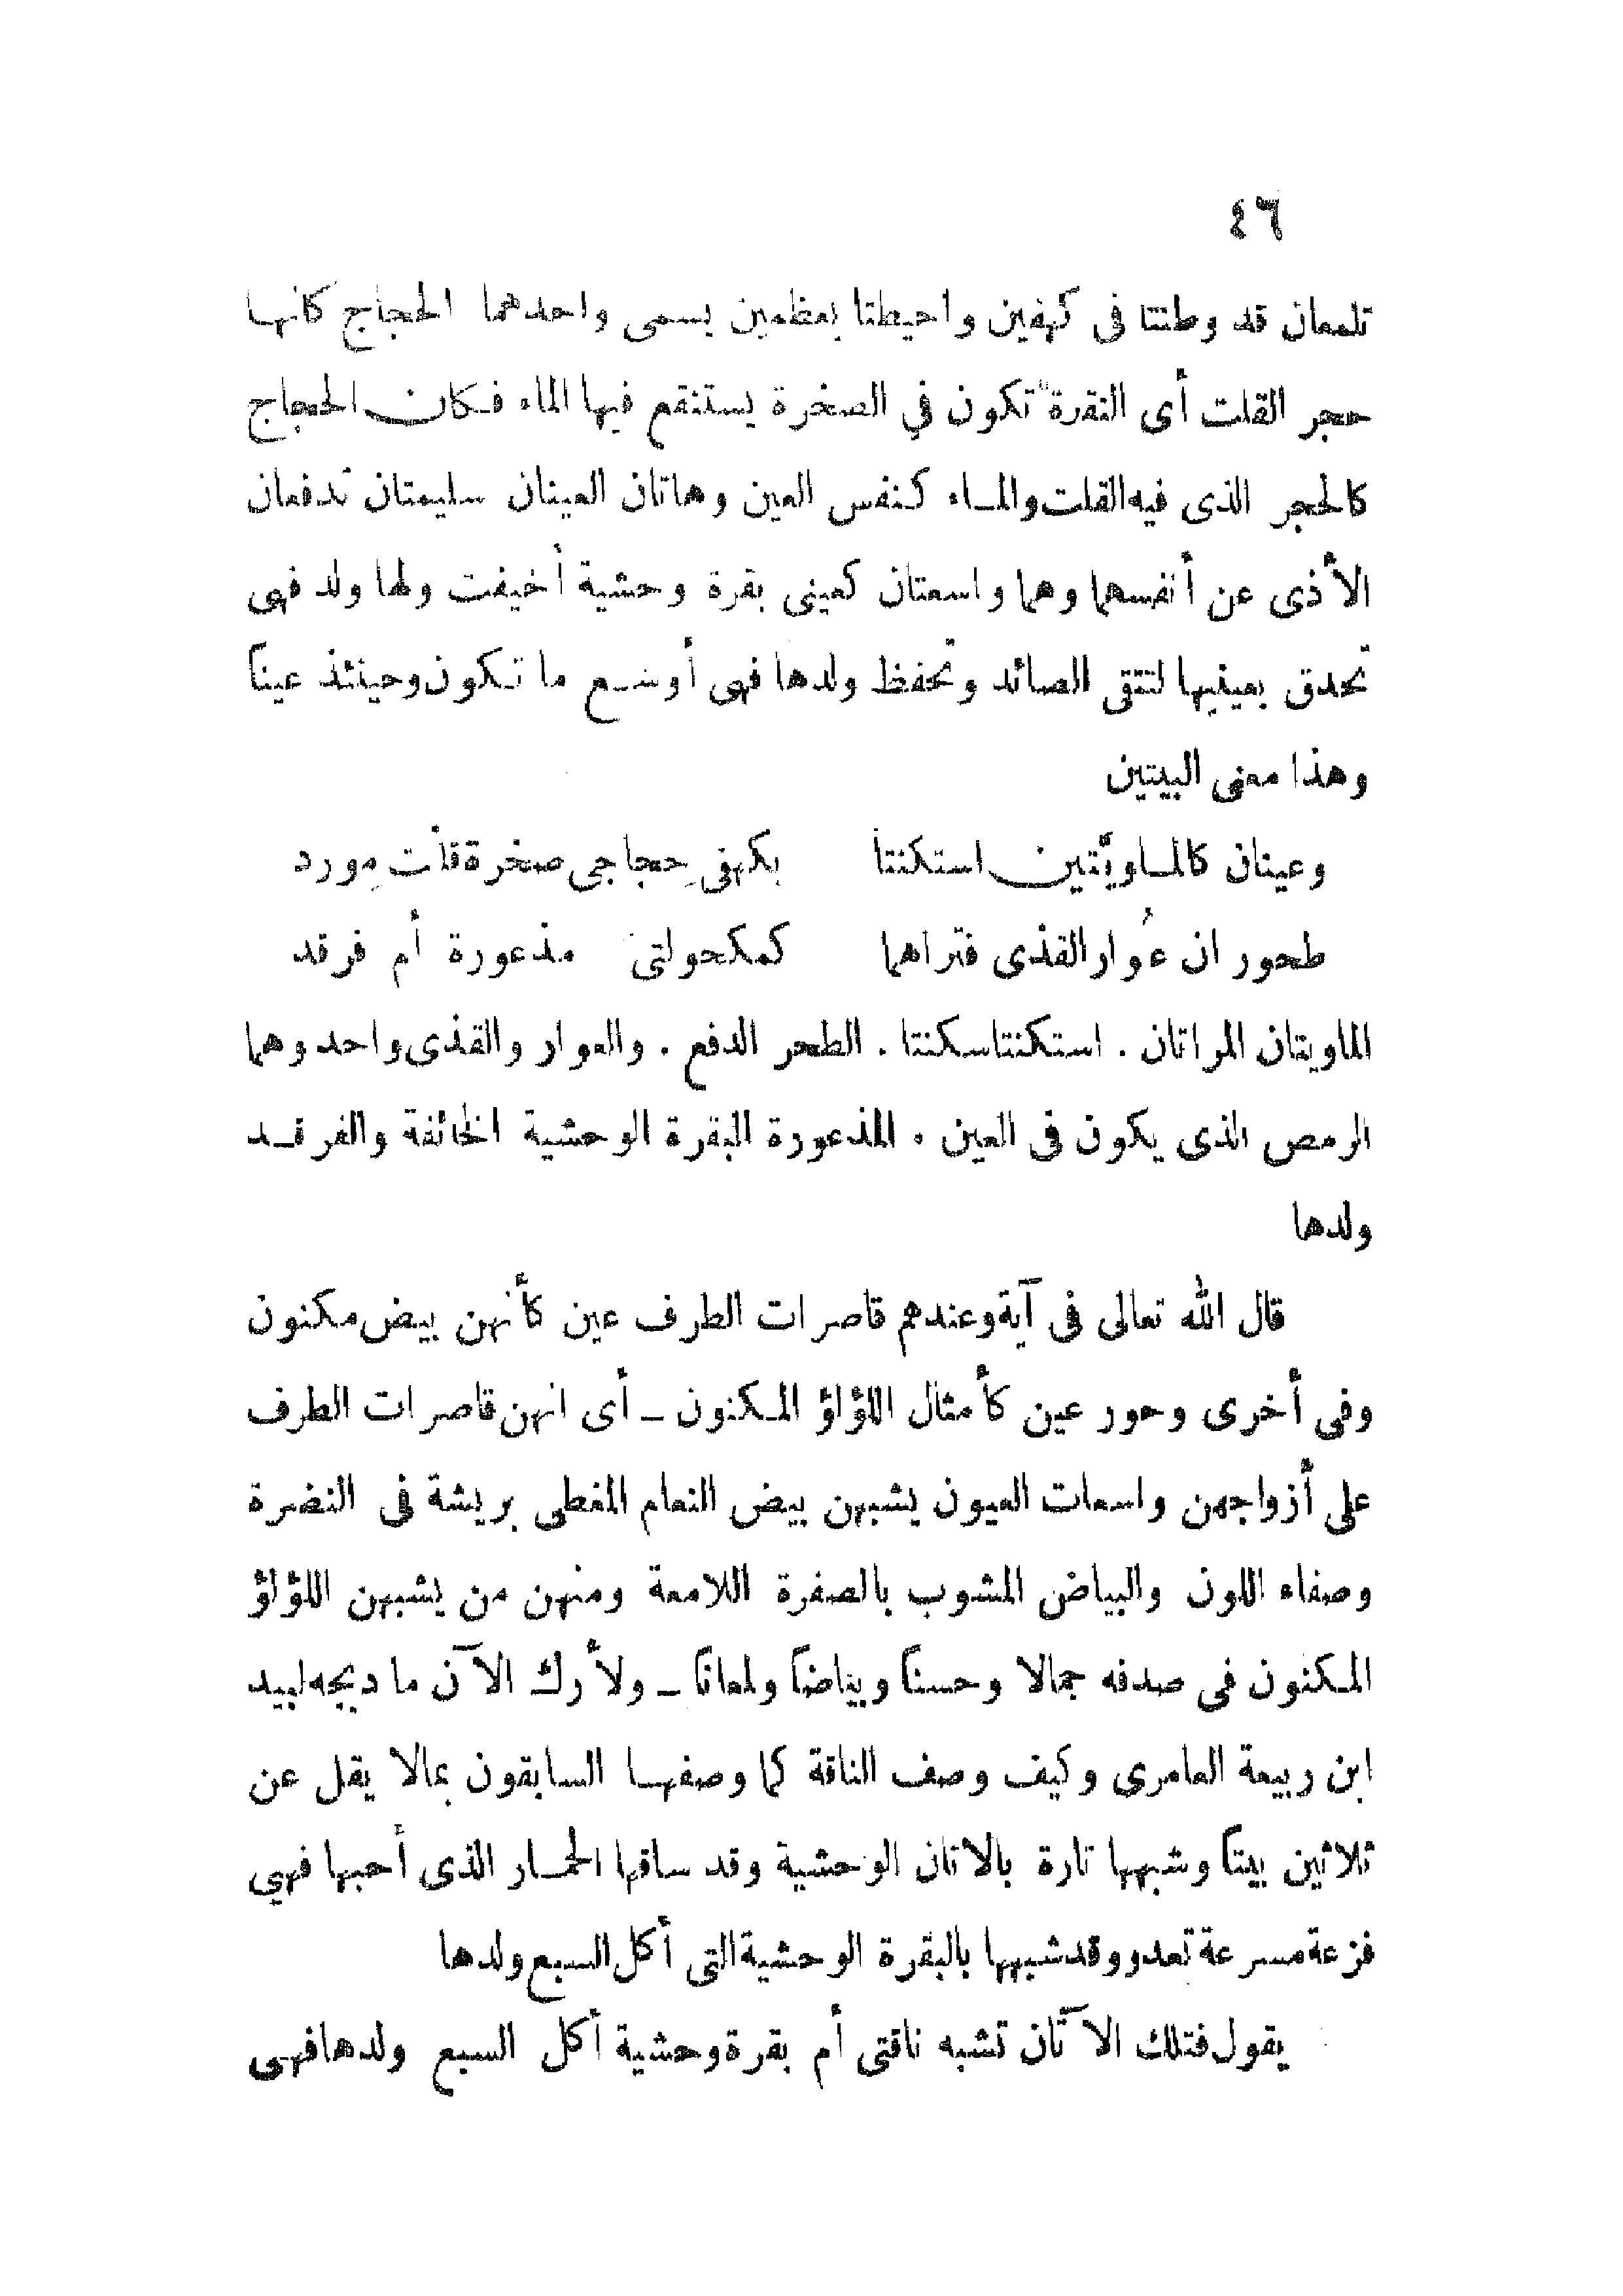 ٤٦
تلمعان قد وطنتا فى كهفين واحيطتا بعظمين يسمى واحدهما الحجاج كانها
حجر القلت أى النقرة تكون في الصخرة يستنقع فيها الماء فكان الحجاج
كالحجر الذى فيه القلت والماء كنفس العين وهاتان العينان سليمتان تدفعان
الأذى عن أنفسهما وهما واسعتان كعينى بقرة وحشية أخيفت ولها ولد فهى
تحدق بعينيها لتتقى الصائد وتحفظ ولدها فهى أوسع ما تكون وحينئذ عيناً
وهذا معنى البيتين
وعينان كالماويَّتين استكنتا بكهفى حِجاجى صخرة قلت مِورد
طحوران عُوار القذى فتراهما كمكحولتى مذعورة أم فرقد
الماويتان المراتان . استكنتا سكنتا . الطحر الدفع . والعوار والقذى واحد وهما
الرمص الذى يكون فى العين . المذعورة البقرة الوحشية الخائفة والفرقد
ولدها
قال الله تعالى فى آية وعندهم قاصرات الطرف عين كأنهن بيض مكنون
وفى أخرى وحور عين كأمثال اللؤلؤ المكنون ـ أى انهن قاصرات الطرف
على أزواجهن واسعات العيون يشبهن بيض النعام المغطى بريشة فى النضرة
وصفاء اللون والبياض المشوب بالصفرة اللامعة ومنهن من يشبهن اللؤلؤ
المكنون فى صدفه جمالا وحسناً وبياضاً ولمعاناً ـ ولأرك الآن ما دبجه لبيد
ابن ربيعة العامرى وكيف وصف الناقة كما وصفها السابقون بمالا يقل عن
ثلاثين بيتاً وشبهها تارة بالاتان الوحشية وقد ساقها الحمار الذى أحبها فهي
فزعة مسرعة تعدو وقد شبهها بالبقرة الوحشية التى أكل السبع ولدها
يقول فتلك الآتان تشبه ناقتى أم بقرة وحشية أكل السبع ولدها فهى